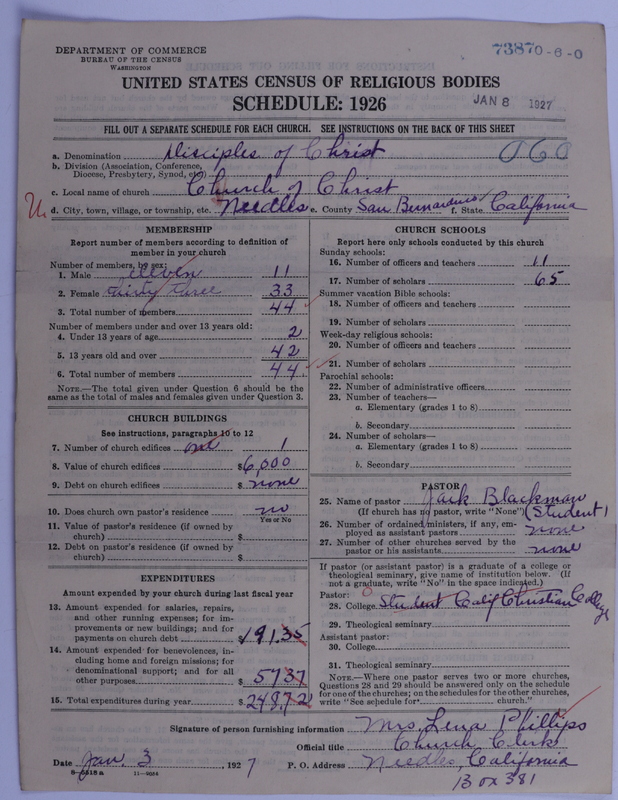 DEPARTMENT OF COMMERCE
BUREAU OF THE CENSUS
WASHINGTON
73870-6-0
UNITED STATES CENSUS OF RELIGIOUS BODIES
SCHEDULE: 1926
JAN 8 1927
FILL OUT A SEPARATE SCHEDULE FOR EACH CHURCH. SEE INSTRUCTIONS ON THE BACK OF THIS SHEET
a. Denomination Disciples of Christ
060
b. Division (Association, Conference,
Diocese, Presbytery, Synod, etc.)
c. Local name of church Church of Christ
d. City, town, village, or township, etc. Needles e. County San Bernardino f. State California
MEMBERSHIP
Report number of members according to definition of
member in your church
Number of members, by sex:
1. Male eleven 11
2. Female thirty three 33
3. Total number of members 44
Number of members under and over 13 years old:
4. Under 13 years of age 2
5. 13 years old and over 42
6. Total number of members 44
NOTE.—The total given under Question 6 should be the
same as the total of males and females given under Question 3.
CHURCH BUILDINGS
See instructions, paragraphs 10 to 12
7. Number of church edifices one 1
8. Value of church edifices $6,000
9. Debt on church edifices $ none
10. Does church own pastor's residence no
Yes or No
11. Value of pastor's residence (if owned by
church) $
12. Debt on pastor's residence (if owned by
church) $
EXPENDITURES
Amount expended by your church during last fiscal year
13. Amount expended for salaries, repairs,
and other running expenses; for im-
provements or new buildings; and for
payments on church debt $191.35
14. Amount expended for benevolences, in-
cluding home and foreign missions; for
denominational support; and for all
other purposes $ 5737
15. Total expenditures during year $ 248.72
CHURCH SCHOOLS
Report here only schools conducted by this church
Sunday schools:
16. Number of officers and teachers 11
17. Number of scholars 65
Summer vacation Bible schools:
18. Number of officers and teachers
19. Number of scholars
Week-day religious schools:
20. Number of officers and teachers
21. Number of scholars
Parochial schools:
22. Number of administrative officers
23. Number of teachers—
a. Elementary (grades 1 to 8)
b. Secondary
24. Number of scholars—
a. Elementary (grades 1 to 8)
b. Secondary
PASTOR
25. Name of pastor Jack Blackman
(If church has no pastor, write "None") (Student)
26. Number of ordained ministers, if any, em-
ployed as assistant pastors none
27. Number of other churches served by the
pastor or his assistants none
If pastor (or assistant pastor) is a graduate of a college or
theological seminary, give name of institution below. (If
not a graduate, write "No" in the space indicated.)
Pastor:
28. College Student Calif Christian College
29. Theological seminary
Assistant pastor:
30. College
31. Theological seminary
NOTE.—Where one pastor serves two or more churches,
Questions 28 and 29 should be answered only on the schedule
for one of the churches; on the schedules for the other churches,
write "See schedule for church."
Signature of person furnishing information Mrs. Lena Phillips
Official title Church Clerk
Date Jan. 3 1927 P. O. Address Needles, California
8-5518 a 11-9088
Box 381